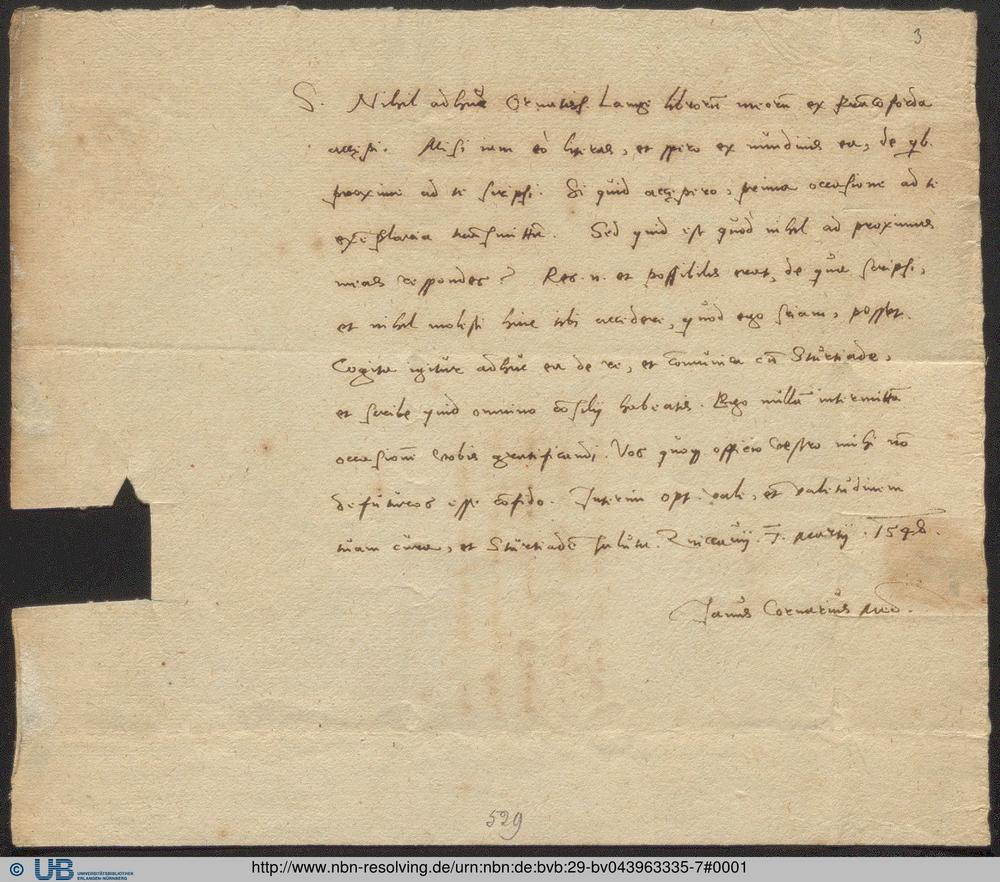 3
S. Nihil adhuc Ornatiss. Langi librorū meorū ex francoforda
accepi. Misi iam eò literas, et spero ex nundinis ea, de qb.
proxime ad te scripsi. Si quid accepero, prima occasione ad te
exēplaria transmittā. Sed quid est quòd nihil ad proximas
meas respondes? Res .n. et possibilis erat, de qua scripsi,
et nihil molesti hinc tibi accidere, quod ego sciam, posset.
Cogita igitur adhuc ea de re, et cōmunica cū Sturtiade,
et scribe quid omnino cōsilij habeatis. Ego nullā intermittā
occasionē vobis gratificandi. Vos quoq officio vestro mihi nō
defuturos esse cōfido. Interim opt. vale, et valetudinem
tuam cura, et Sturtiadē saluta. Zuiccauij. 7. Martij. 1548.
Janus Cornarius Med.
529
© UB UNIVERSITÄTSBIBLIOTHEK
ERLANGEN-NÜRNBERG
http://www.nbn-resolving.de/urn:nbn:de:bvb:29-bv043963335-7#0001